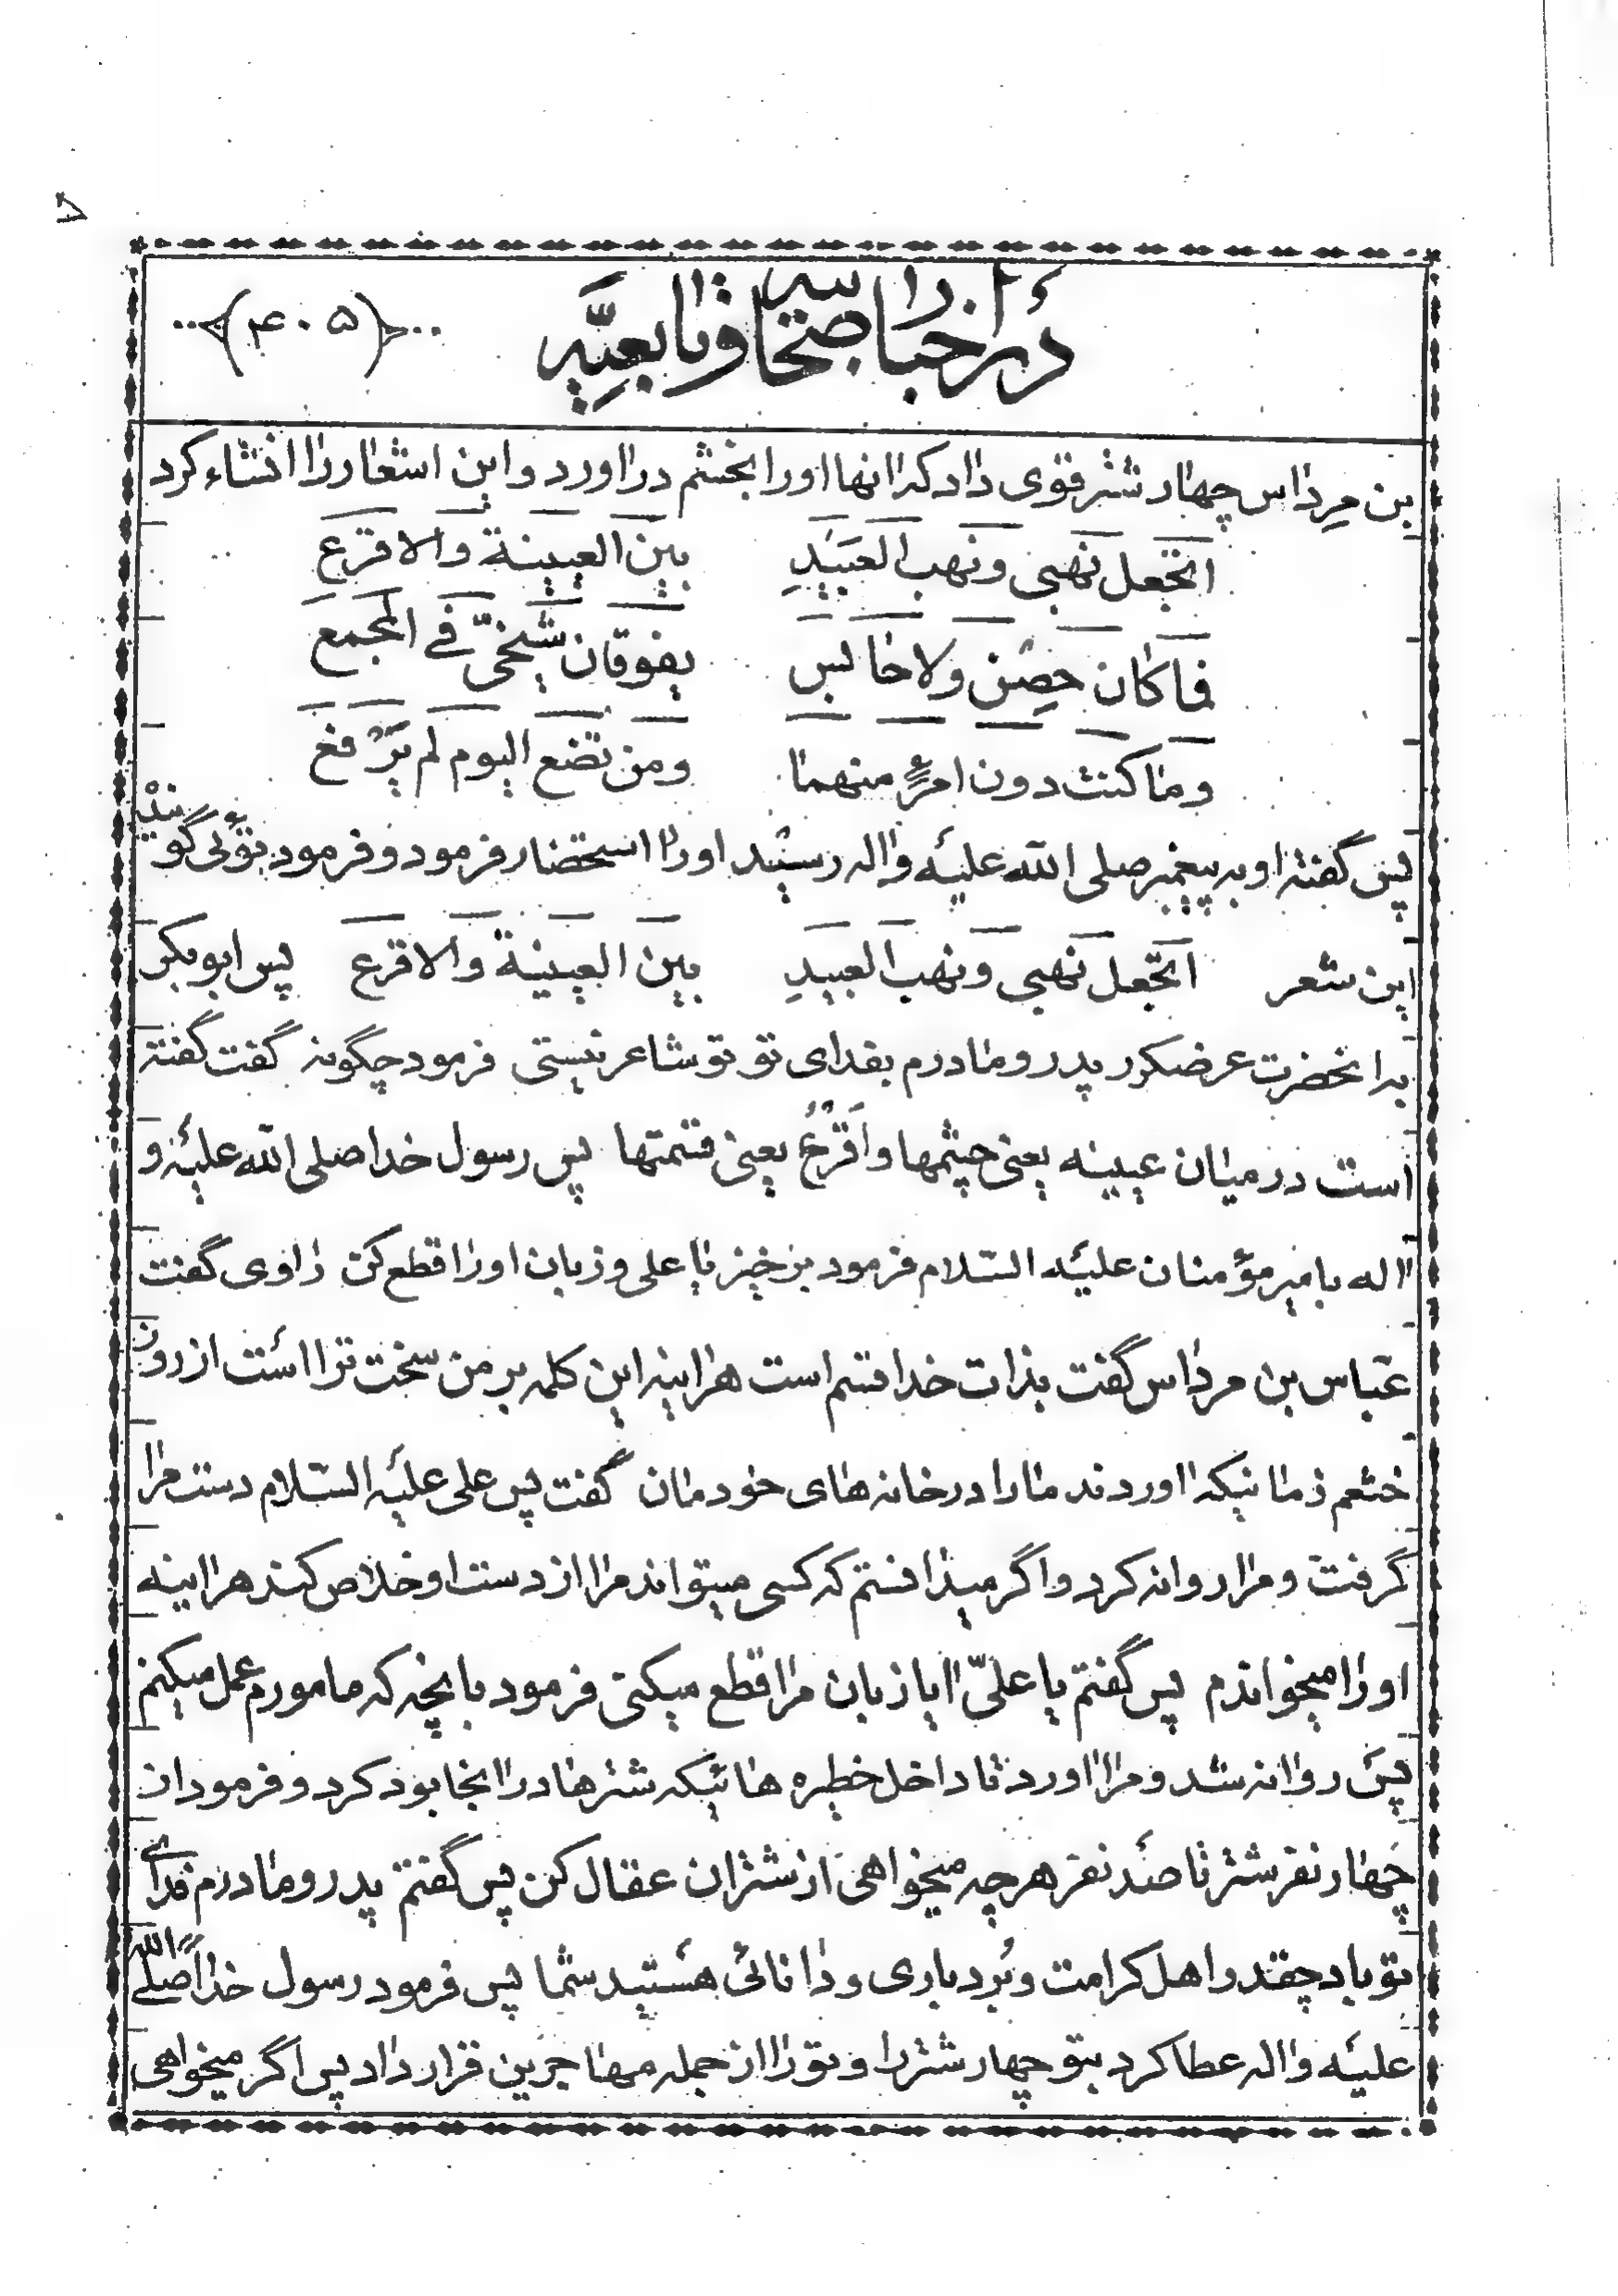 در اخبار صحابه و تابعین
(۴۰۵)
بن مرداس چهار شتر قوی داد که آنها او را بخشم در آورد و این اشعار را انشاء کرد
اتجعل نهبی و نهب العبید بین العیینة و الاقرع
فما کان حصن ولا حابس یفوقان شیخی فی المجمع
وما کنت دون امرء منهما ومن تضع الیوم لم یرفع
پس گفتهٔ او به پیغمبر صلی الله علیه و اله رسید او را استحضار فرمود و فرمود توئی گویندهٔ
این شعر اتجعل نهبی و نهب العبید بین العیینة و الاقرع پس ابوبکر
به انحضرت عرضکرد پدر و مادرم بفدای تو تو شاعر نیستی فرمود چگونه گفت گفته
است در میان عیینه یعنی چشمها و اقرع یعنی قسمتها پس رسول خدا صلی الله علیه و
اله بامیر مؤمنان علیه السّلام فرمود برخیز یا علی و زبان او را قطع کن راوی گفت
عبّاس بن مرداس گفت بذات خدا قسم است هراینه این کلمه بر من سخت تر است از روز
خثعم زمانیکه اوردند ما را در خانه های خودمان گفت پس علی علیه السّلام دست مرا
گرفت و مرا روانه کرد و اگر میدانستم که کسی میتواند مرا از دست او خلاص کند هراینه
او را میخواندم پس گفتم یا علیّ ایا زبان مرا قطع میکنی فرمود بانچه که مامورم عمل میکنم
پس روانه شد و مرا اورد تا داخل خطیره هائیکه شترها در انجا بود کرد و فرمود از
چهار نفر شتر تا صد نفر هر چه میخواهی از شتران عقال کن پس گفتم پدر و مادرم فدای
تو باد چقدر اهل کرامت و بُردباری و دانائی هستید شما پس فرمود رسول خدا صلی الله
علیه و اله عطا کرد بتو چهار شتر را و تو را از جمله مهاجرین قرار داد پس اگر میخواهی